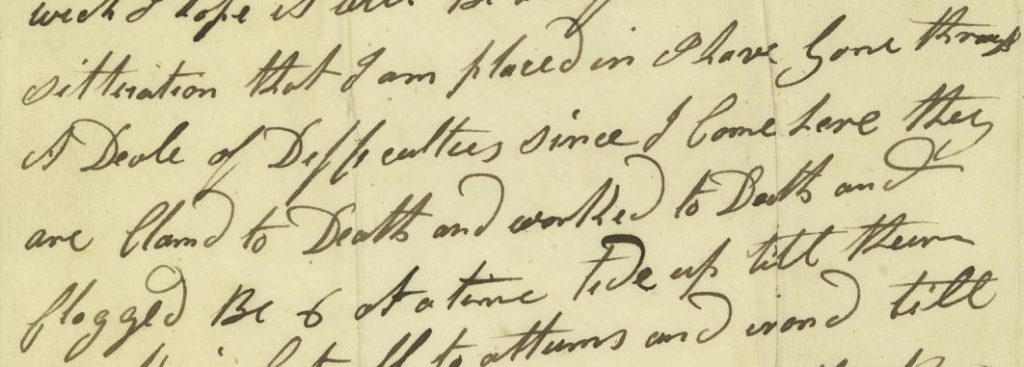 I hope is well Be
sitteration that I am placed in I have Gone through
A Deale of Difficulties since I Come here they
are Clamd to Death and worked to Death and
flogged Be 6 at a time tide up till their
to attums and irond till